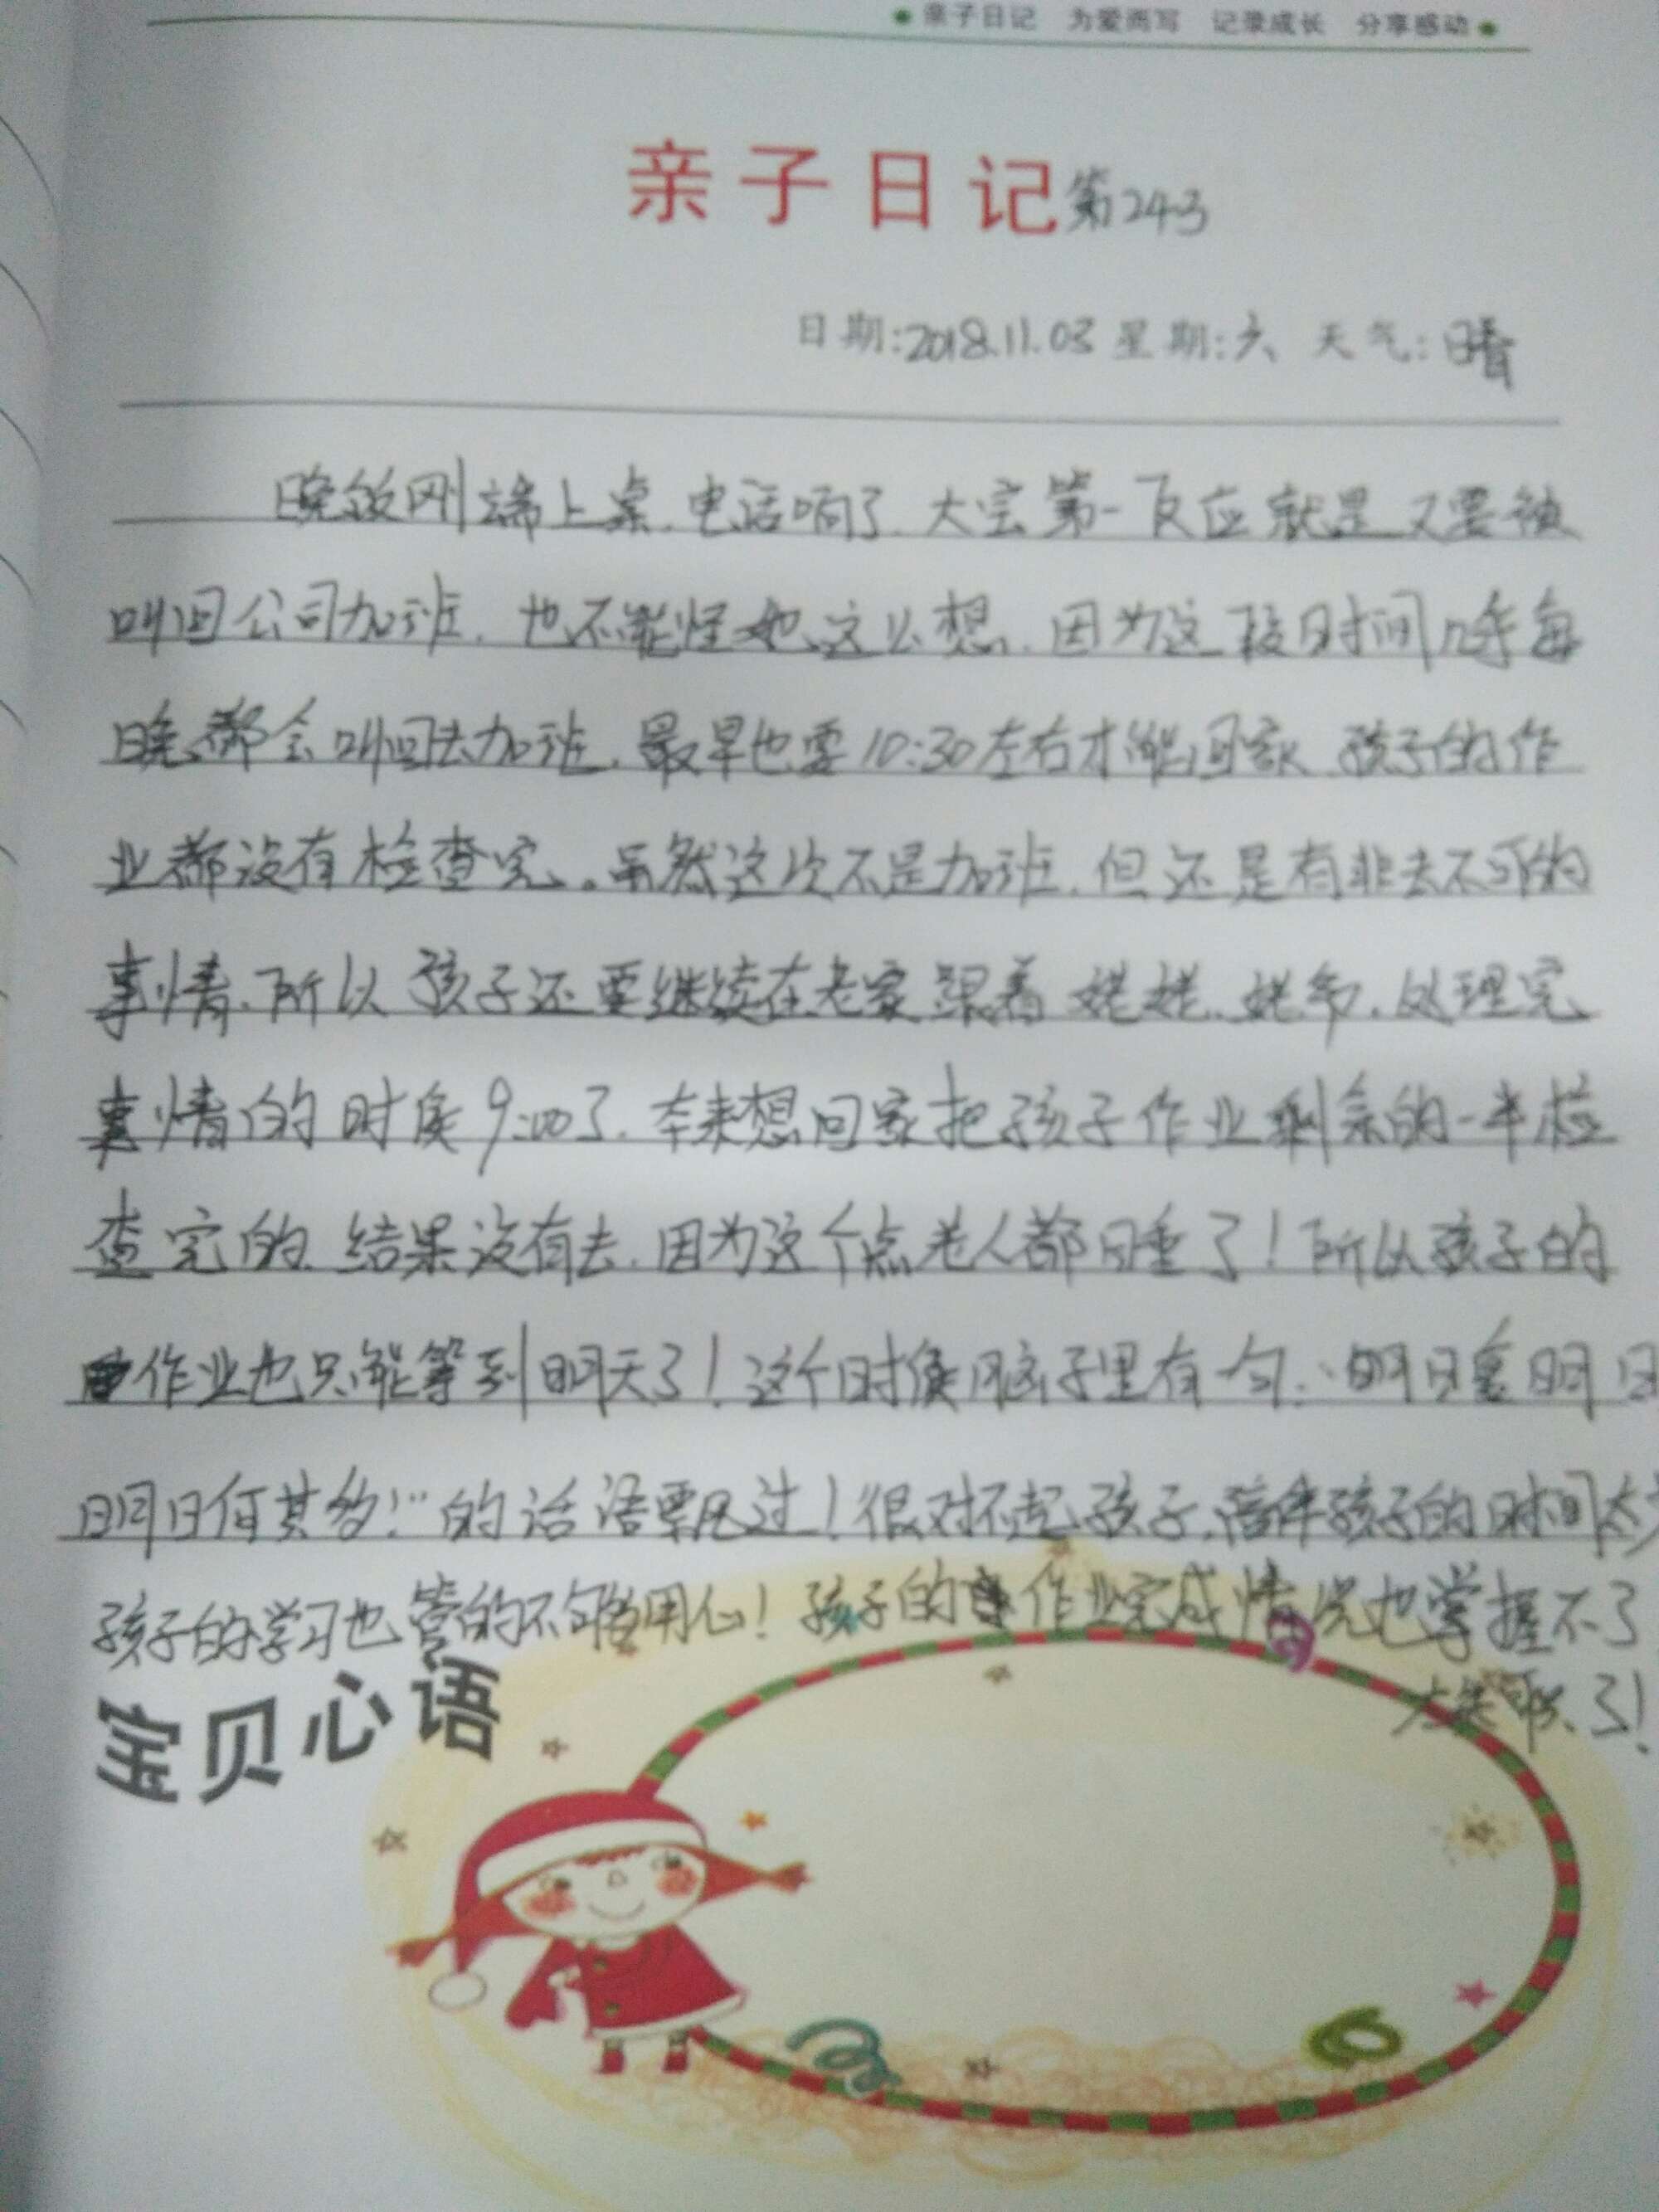 亲子日记 为爱而写 记录成长 分享感动
亲子日记第243
日期:2018.11.03 星期:六 天气:晴
晚饭刚端上桌.电话响了.大宝第一反应就是又要被
叫回公司加班.也不能怪她这么想.因为这段时间几乎每
晚都会叫回去加班.最早也要10:30左右才能回家 孩子的作
业都没有检查完。虽然这次不是加班.但还是有非去不可的
事情.所以孩子还要继续在老家跟着姥姥、姥爷.处理完
事情的时候9:00了.本来想回家把孩子作业剩余的一半检
查完的.结果没有去.因为这个点老人都睡了!所以孩子的
作业也只能等到明天了!这个时候脑子里有一句:"明日复明日
明日何其多!"的话语飘过!很对不起孩子.陪伴孩子的时间太少
孩子的学习也管的不够用心!孩子的作业完成情况也掌握不了
太失职了!
宝贝心语